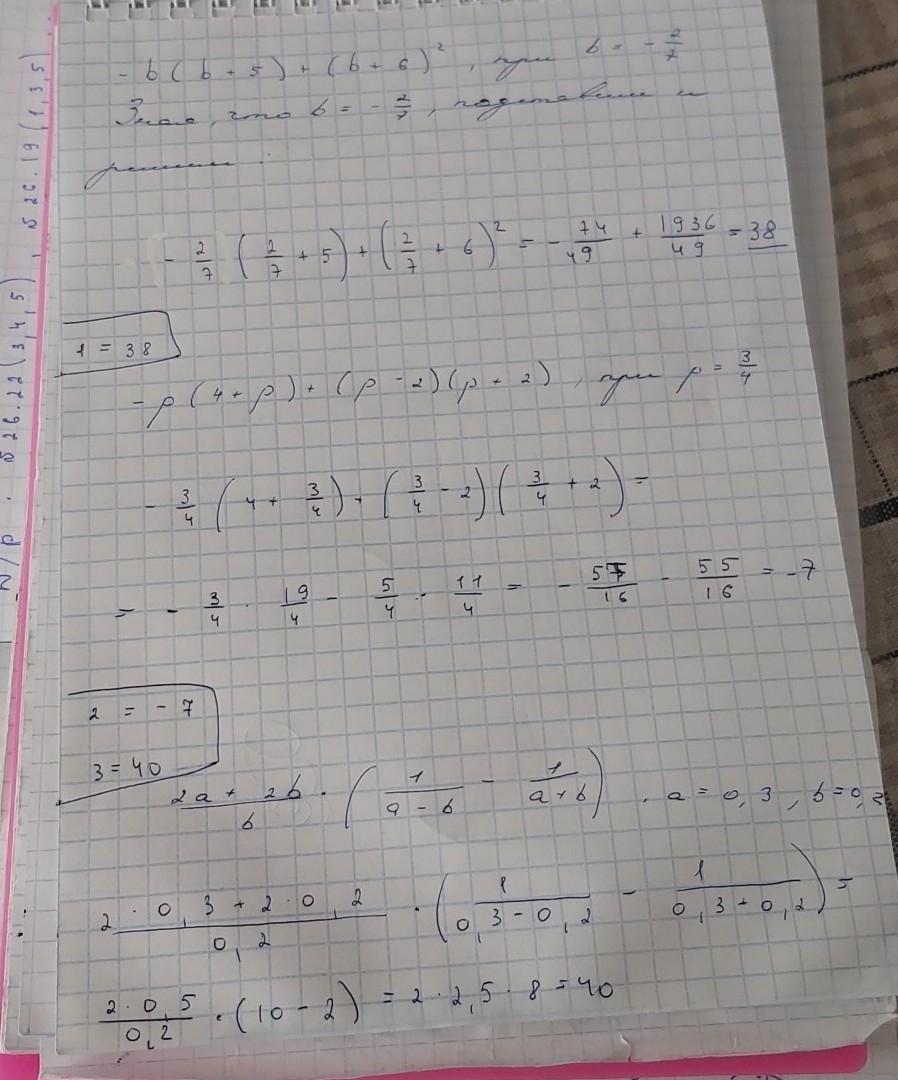 - b ( b + 5 ) + ( b + 6 )², при b = - 2/7
Зная, что b = - 2/7, подставим и
решим :
- 2/7 ( 2/7 + 5 ) + ( 2/7 + 6 )² = - 74/49 + 1936/49 = 38
1 = 38
- p ( 4 + p ) + ( p - 2 ) ( p + 2 ), при p = 3/4
- 3/4 ( 4 + 3/4 ) + ( 3/4 - 2 ) ( 3/4 + 2 ) =
= - 3/4 · 19/4 - 5/4 · 11/4 = - 57/16 - 55/16 = -7
2 = - 7
3 = 40
2a + 2b / b · ( 1 / a - b - 1 / a + b ) , a = 0,3 , b = 0,2
2 · 0,3 + 2 · 0,2 / 0,2 · ( 1 / 0,3 - 0,2 - 1 / 0,3 + 0,2 ) =
2 · 0,5 / 0,2 · ( 10 - 2 ) = 2 · 2,5 · 8 = 40
№26.22 (3,4,5), №26.19 (1,3,5)